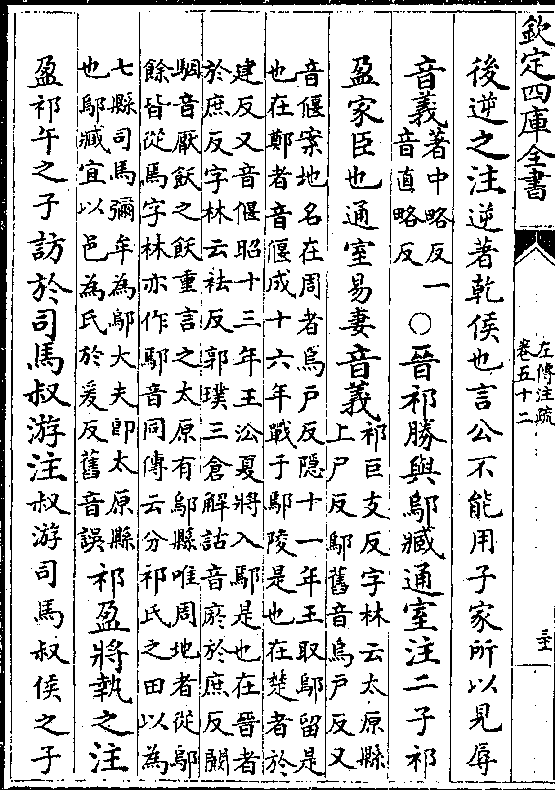 欽定四庫全書
左傳注疏
卷五十二
三十
後逆之注逆著乾侯也言公不能用子家所以見辱
音義著中略反一
音直略反
○晉祁勝與鄔臧通室注二子祁
盈家臣也通室易妻音義
祁巨支反字林云太原縣
上尸反鄔舊音烏戸反又
音偃案地名在周者烏戸反隠十一年王取鄔留是
也在鄭者音偃成十六年戰于鄢陵是也在楚者於
建反又音偃昭十三年王㳂夏將入鄢是也在晉者
於庶反字林云袪反郭璞三倉解詁音瘀於庶反闞
駰音厭飫之飫重言之太原有鄔縣唯周地者從鄔
餘皆從焉字林亦作鄢音同傳云分祁氏之田以為
七縣司馬彌牟為鄔大夫即太原縣
也鄔臧宜以邑為氏於爰反舊音誤
祁盈將執之注
盈祁午之子訪於司馬叔游注叔游司馬叔侯之子